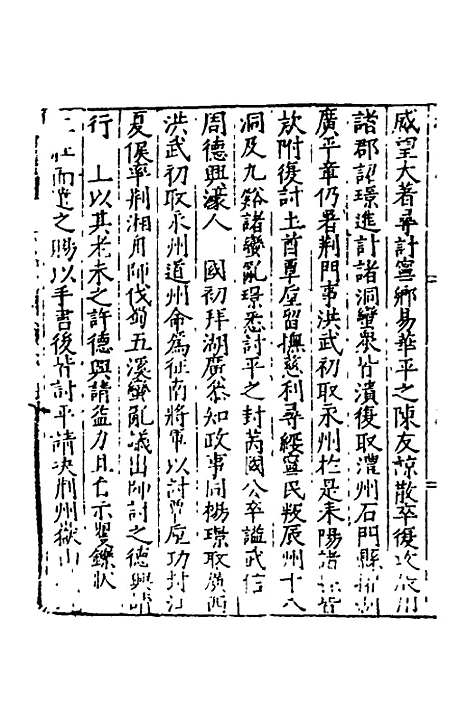 威望大著尋討寧鄉易華平之陳友諒散卒復攻辰州
諸郡詔璟進討諸洞蠻衆皆潰復取澧州石門縣
廣平章仍署荆門事洪武初取永州於是耒陽諸
欵附復討土酋覃垕留撫慈利尋綏寧民叛辰州十八
洞及九谿諸蠻亂璟悉討平之封芮國公卒謚武信
周德興濠人 國初拜湖廣叅知政事同楊璟取廣西
洪武初取永州道州命為征南將軍以討覃垕功封江
夏侯率荆湘舟師伐蜀五溪蠻亂議出師討之德興請
行 上以其老未之許德興請益力且自示矍鑠狀
上壯而遣之賜以手書後皆討平請决荆州嶽山